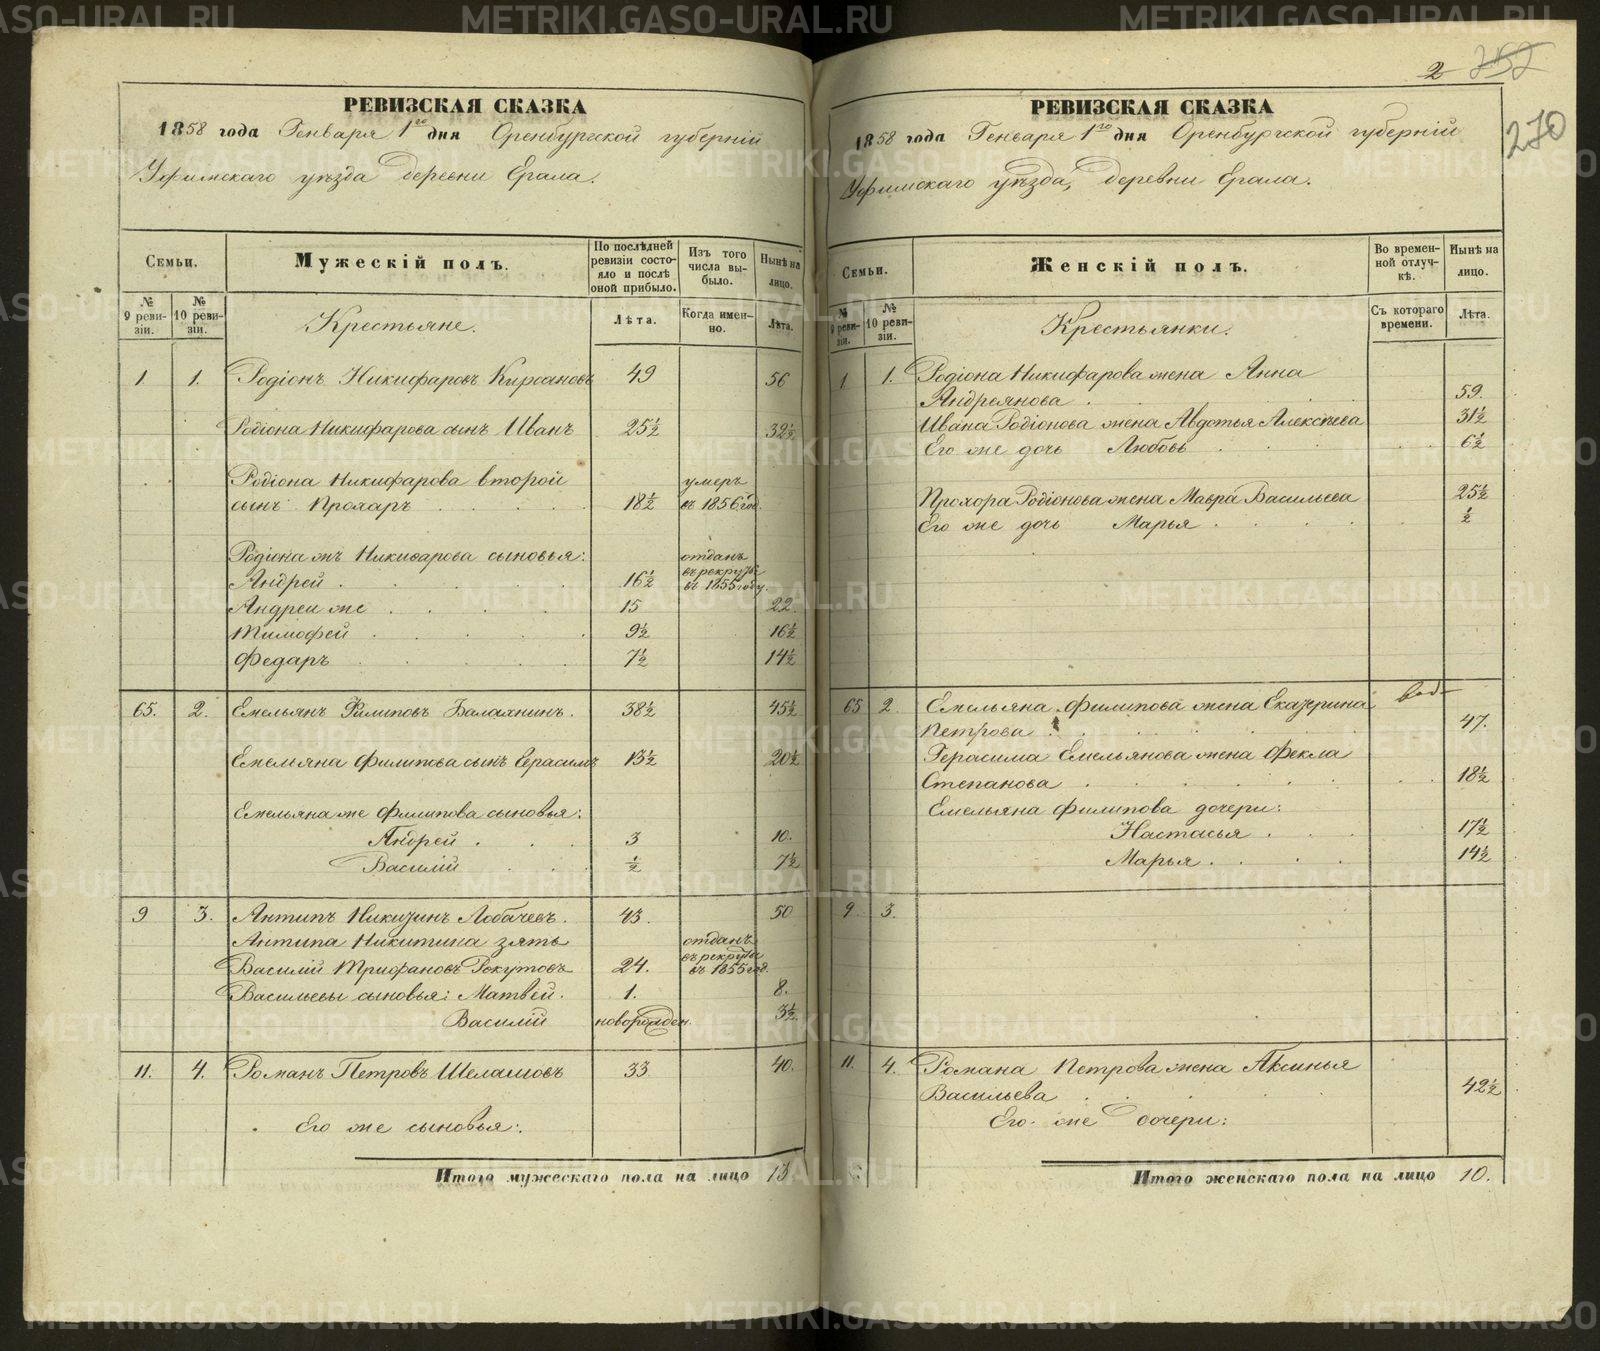 РЕВИЗСКАЯ СКАЗКА
1858 года Генваря 1го дня Оренбургской губерній
Уфимскаго уѣзда деревни Ерала.
Семьи.
Мужескій полъ.
По послѣдней ревизіи состояло и послѣ оной прибыло.
Изъ того числа выбыло.
Нынѣ на лицо.
№ 9 ревизіи.
№ 10 ревизіи.
Крестьяне.
Лѣта.
Когда именно.
Лѣта.
1 1. Родіонъ Никифаровъ Кирсановъ 49 56
Родіона Никифарова сынъ Иванъ 25½ 32½
Родіона Никифарова второй умеръ
сынъ Прохаръ 18½ въ 1856 год.
Родіона жъ Никифарова сыновья: отданъ
Андрей 16½ въ рекруты въ 1855 году.
Андреи же 15 22
Тимофей 9½ 16½
Федаръ 7½ 14½
65. 2. Емельянъ Филиповъ Балахнинъ. 38½ 45½
Емельяна Филипова сынъ Герасимъ 13½ 20½
Емельяна же Филипова сыновья:
Андрей 3 10.
Василій ½ 7½
9 3. Антипъ Никитинъ Лобачевъ. 43. 50
Антипа Никитина зять отданъ
Василій Трифановъ Рекутовъ 24. въ рекруты въ 1855 год.
Васильевы сыновья: Матвей. 1. 8.
Василій новорожден. 3½
11. 4. Романъ Петровъ Шеламовъ 33 40.
Его же сыновья:
Итого мужескаго пола на лицо 13
2 252
270
РЕВИЗСКАЯ СКАЗКА
1858 года Генваря 1го дня Оренбургской губерній
Уфимскаго уѣзда, деревни Ерала.
Семьи.
Женскій полъ.
Во временной отлучкѣ.
Нынѣ на лицо.
№ 9 ревизіи.
№ 10 ревизіи.
Крестьянки.
Съ котораго времени.
Лѣта.
1 1. Родіона Никифарова жена Анна
Андреянова 59.
Ивана Родіонова жена Авдотья Алексѣева 31½
Его же дочь Любовь 6½
Прохора Родіонова жена Мавра Васильева 25½
Его же дочь Марья ½
65 2 Емельяна Филипова жена Екатерина
Петрова 47.
Герасима Емельянова жена Фекла
Степанова 18½
Емельяна Филипова дочери:
Настасья 17½
Марья 14½
9. 3.
11. 4. Романа Петрова жена Аксинья
Васильева 42½
Его же дочери:
Итого женскаго пола на лицо 10.
METRIKI.GASO-URAL.RU